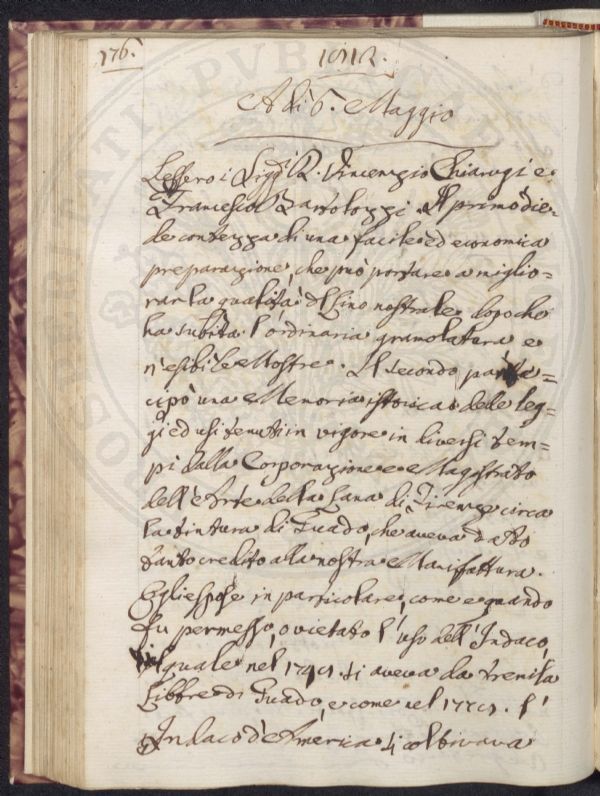 176.
1812.
A dì 6. Maggio
Lessero i Sigg.i D. Vincenzio Chiarugi e
Francesco Bartolozzi. Il primo die-
de contezza di una facile ed economica
preparazione, che può portare a miglio=
rar la qualità del lino nostrale dopo che
ha subìta l'ordinaria gramolatura e
n'esibì le Mostre. Il secondo parte=
cipò una Memoria istorica delle leg=
gi ed usi tenuti in vigore in diversi tem=
pi dalla Corporazione e Magistrato
dell'Arte della Lana di Firenze circa
la tintura di Guado, che aveva dato
tanto credito alla nostra Manifattura.
Egli espose in particolare, come e quando
fu permesso, o vietato l'uso dell'Indaco,
il quale nel si aveva da tremila
Libbre di Guado, e come nel l'
Indaco d'America si coltivava